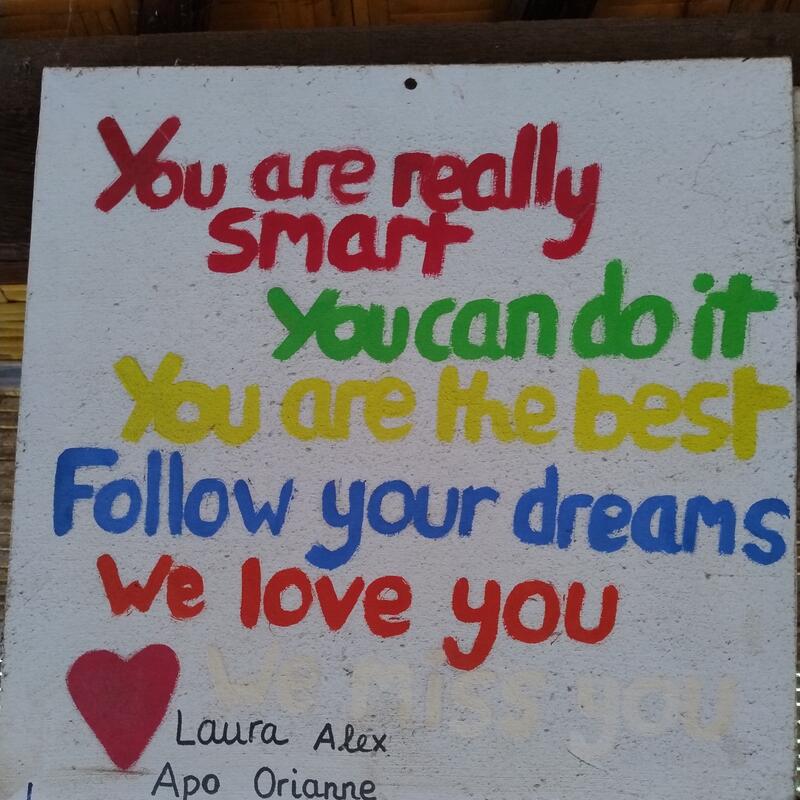 You are really
smart
You can do it
You are the best
Follow your dreams
We love you
We miss you
Laura Alex
Apo Orianne